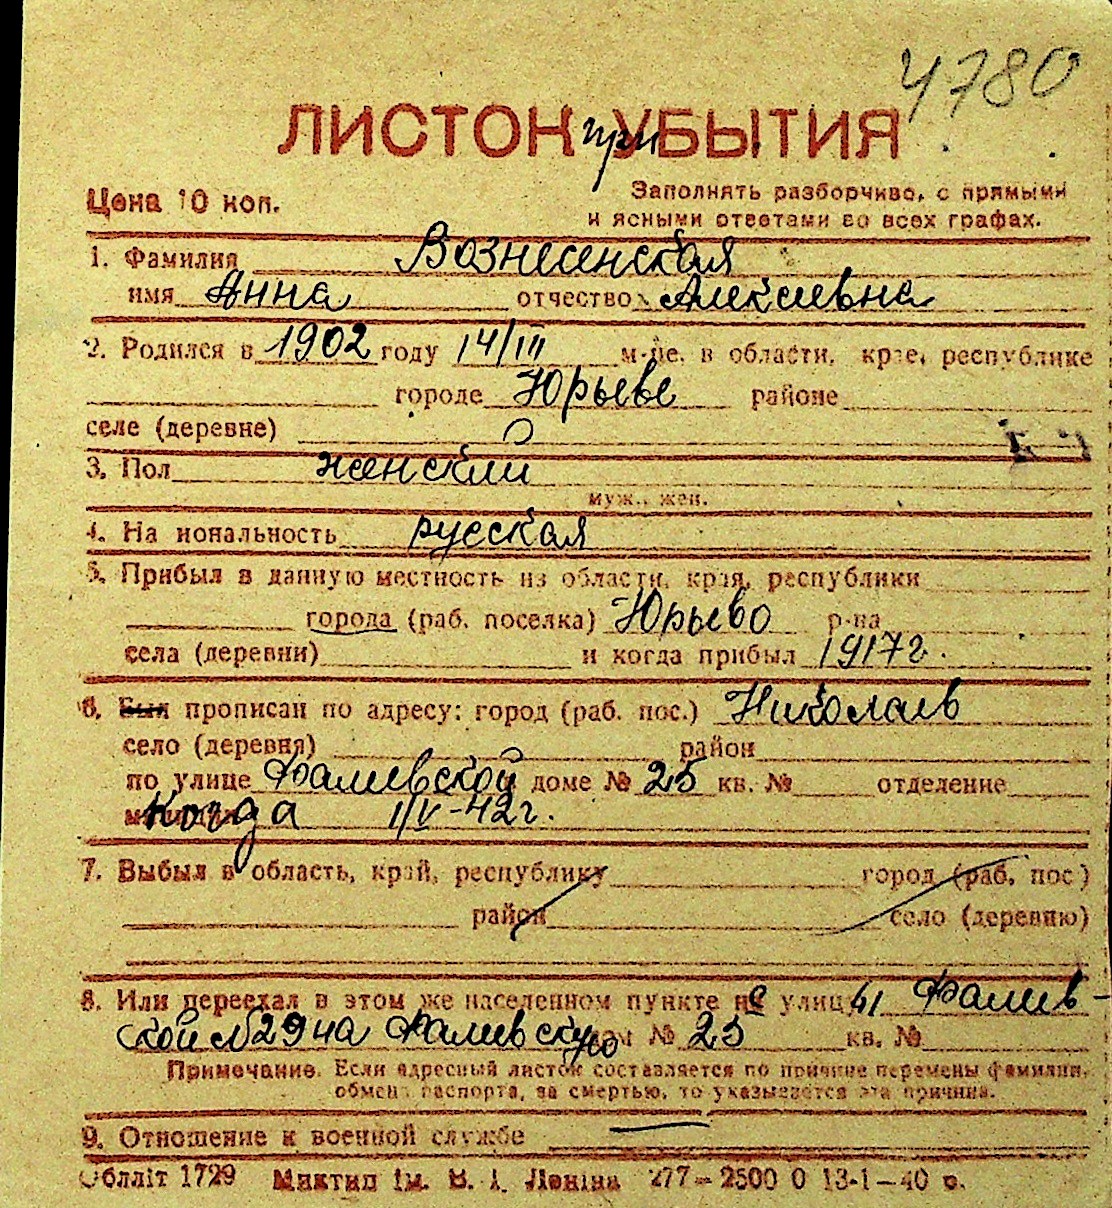 4780
ЛИСТОК при УБЫТИЯ
Цена 10 коп.
Заполнять разборчиво, с прямыми
и ясными ответами во всех графах.
1. Фамилия Вознесенская
имя Анна отчество Алексеевна
2. Родился в 1902 году 14/III м-це, в области, крае, республике
городе Юрьеве районе
селе (деревне)
3. Пол женский
муж., жен.
4. Национальность русская
5. Прибыл в данную местность из области, края, республики
города (раб. поселка) Юрьево р-на
села (деревни) и когда прибыл 1917г.
6. Был прописан по адресу: город (раб. пос.) Николаев
село (деревня) район
по улице Фалиевской доме № 25 кв. № отделение
милиции Когда 1/V-42г.
7. Выбыл в область, край, республику город (раб. пос)
район село (деревню)
8. Или переехал в этом же населенном пункте не улицы Фалиев-
ской №29 на Фалиевскую дом № 25 кв. №
Примечание. Если адресный листок составляется по причине перемены фамилии,
обмена паспорта, за смертью, то указывается эта причина.
9. Отношение к военной службе
Облліт 1729 Миктип ім. В. І. Леніна 277-2500 0 13-1-40 р.